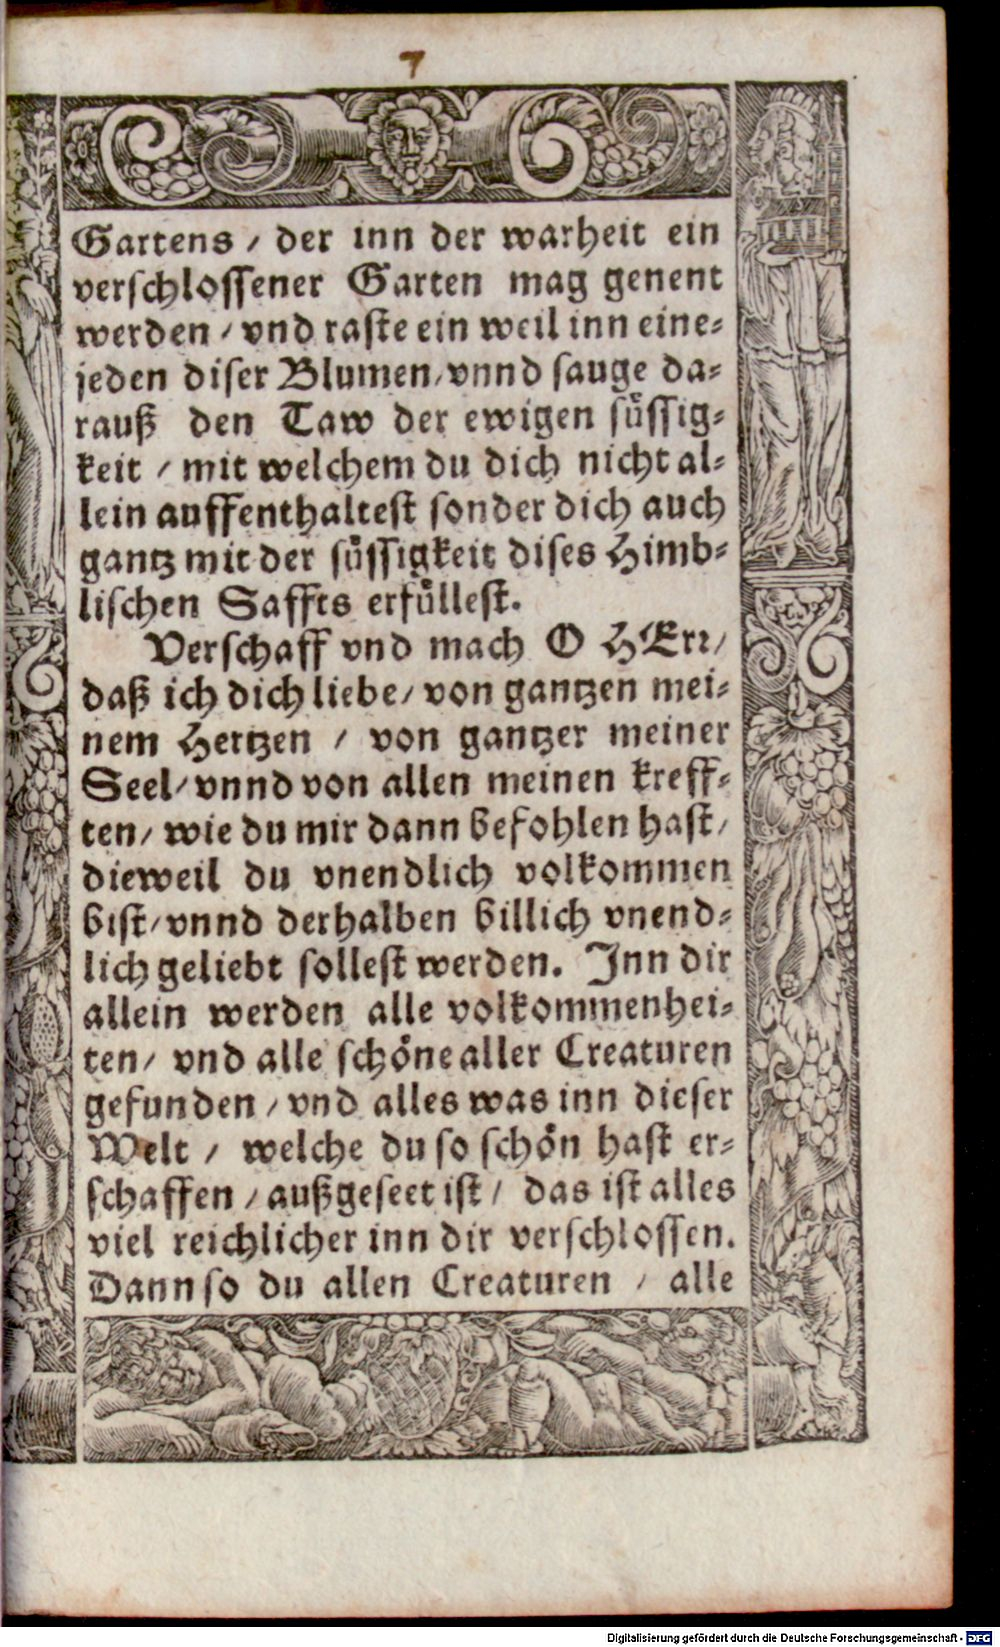 7
Gartens / der inn der warheit ein
verschlossener Garten mag genent
werden / vnd raste ein weil inn eine-
jeden diser Blumen / vnnd sauge da-
rauß den Taw der ewigen süssig-
keit / mit welchem du dich nicht al-
lein auffenthaltest sonder dich auch
gantz mit der süssigkeit dises Himb-
lischen Saffts erfüllest.
Verschaff vnd mach O HErr /
daß ich dich liebe / von gantzen mei-
nem Hertzen / von gantzer meiner
Seel / vnnd von allen meinen kreff-
ten / wie du mir dann befohlen hast /
dieweil du vnendlich volkommen
bist / vnnd derhalben billich vnend-
lich geliebt sollest werden. Inn dir
allein werden alle volkommenhei-
ten / vnd alle schöne aller Creaturen
gefunden / vnd alles was inn dieser
Welt / welche du so schön hast er-
schaffen / außgeseet ist / das ist alles
viel reichlicher inn dir verschlossen.
Dann so du allen Creaturen / alle
Digitalisierung gefördert durch die Deutsche Forschungsgemeinschaft - DFG